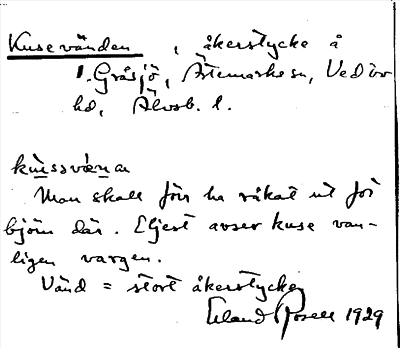 Kusevänden, åkerstycke å
1. Gråsjö, Ärtemarks sn, Vedbo
hd, Älvsb. l.
kussväna
Man skall förr ha råkat ut för
björn där. Eljest avser kuse van-
ligen vargen.
Vänd = stort åkerstycke
Erland Rosell 1929